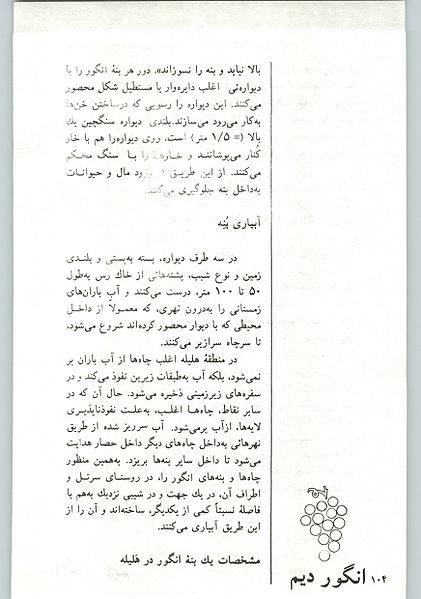 بالا نیاید و بنه را نسوزاند». دور هر بنهٔ انگور را با
دیواره‌ئی اغلب دایره‌وار یا مستطیل شکل محصور
می‌کنند. این دیواره را رسوبی که درساختن خن‌ها
به‌کار می‌رود می‌سازند. بلندی دیواره سنگچین یك
بالا (= ۱/۵ متر) است. روی دیواره‌را هم با خار
کُنار می‌پوشانند و خارها را با سنگ محکم
می‌کنند. از این طریق از ورود مال و حیوانات
به‌داخل بنه جلوگیری می‌کنند.
آبیاری بُنِه
در سه طرف دیواره، بسته به‌پستی و بلندی
زمین و نوع شیب، پشته‌هائی از خاك رس به‌طول
۵۰ تا ۱۰۰ متر، درست می‌کنند و آب باران‌های
زمستانی را به‌درون نهری، که معمولاً از داخل
محیطی که با دیوار محصور کرده‌اند شروع می‌شود،
تا سرچاه سرازیر می‌کنند.
در منطقهٔ هلیله اغلب چاه‌ها از آب باران پر
نمی‌شود، بلکه آب به‌طبقات زیرین نفوذ می‌کند و در
سفره‌های زیرزمینی ذخیره می‌شود. حال آن که در
سایر نقاط، چاه‌ها اغلب، به‌علت نفوذناپذیری
لایه‌ها، ازآب پرمی‌شود. آب سرریز شده از طریق
نهرهائی به‌داخل چاه‌های دیگر داخل حصار هدایت
می‌شود تا داخل سایر بنه‌ها بریزد. به‌همین منظور
چاه‌ها و بنه‌های انگور را، در روستای سرتل و
اطراف آن، در یك جهت و در شیبی نزدیك به‌هم با
فاصلهٔ نسبتاً کمی از یکدیگر، ساخته‌اند و آن را از
این طریق آبیاری می‌کنند.
مشخصات یك بنهٔ انگور در هَلیله
۱۰۴ انگور دیم